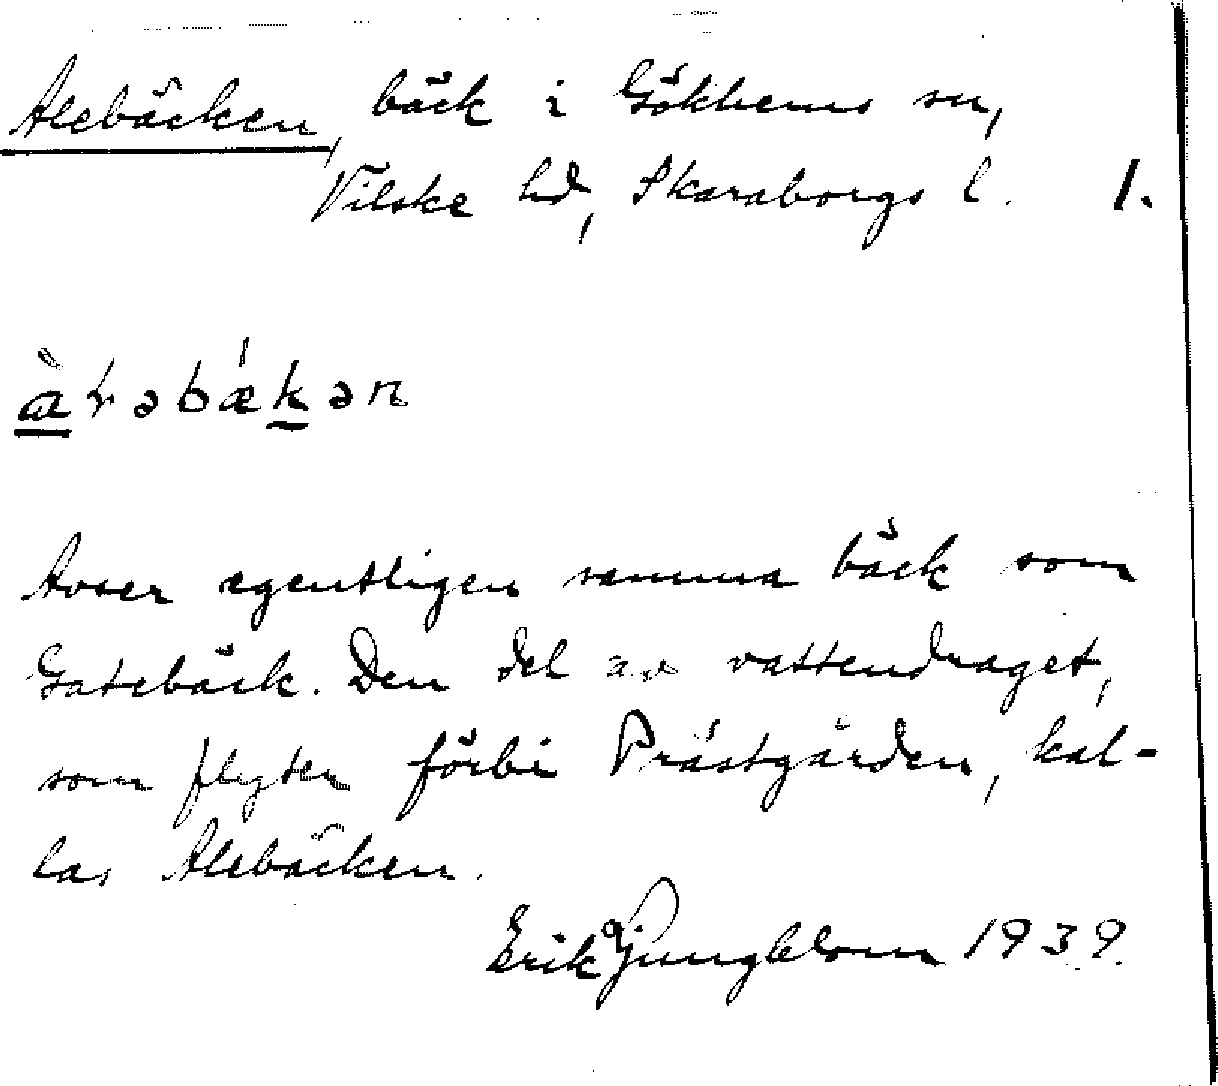 Alebäcken, bäck i Gökhems sn,
Vilske hd, Skaraborgs l. 1.
àrəbǽkən
Avser egentligen samma bäck som
Gatebäck. Den del av vattendraget,
som flyter förbi Prästgården, kal-
las Alebäcken.
Erik Ljungblom 1939.